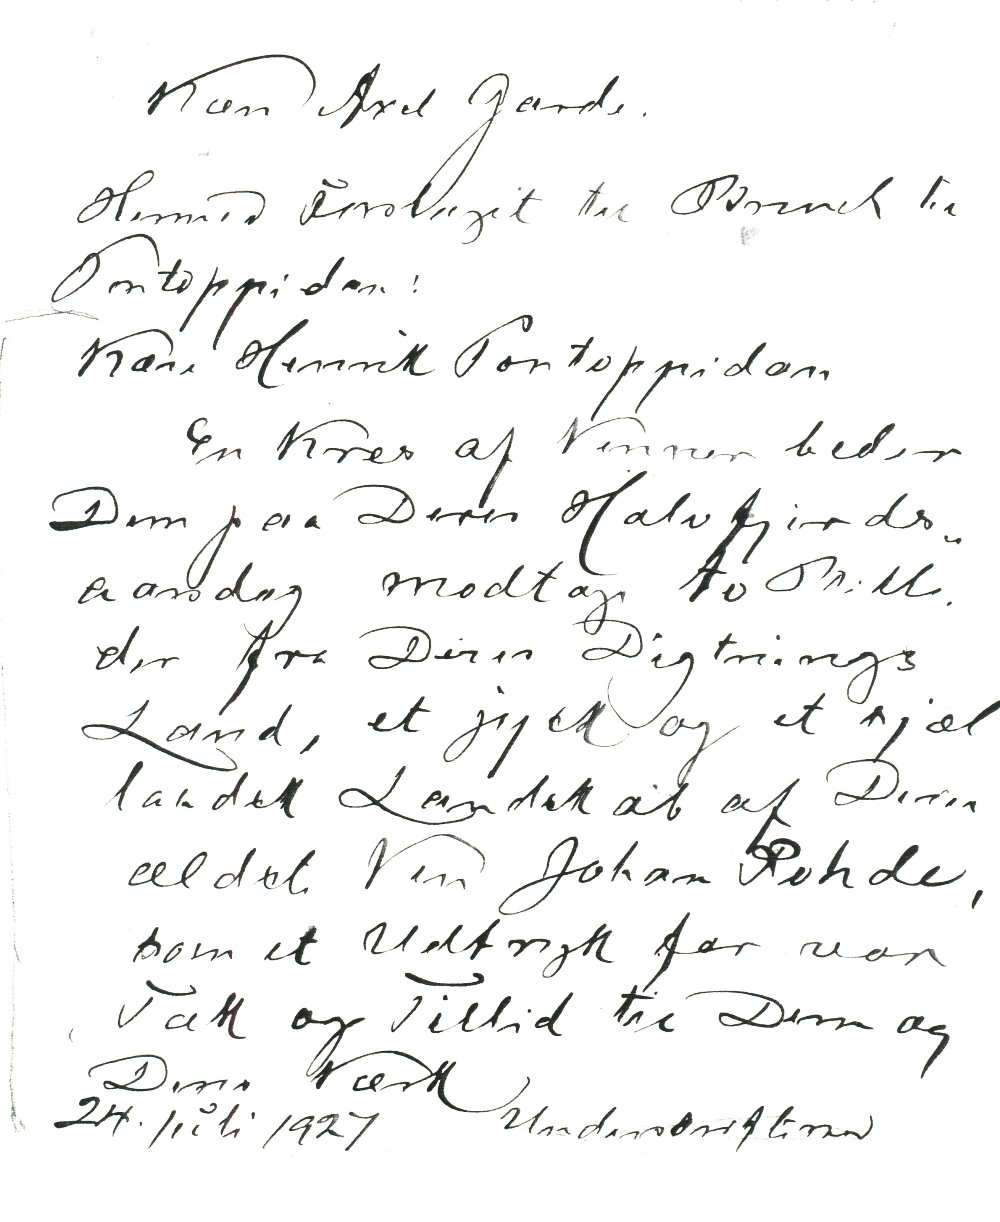 Kære Axel Garde.
Hermed Forslaget til Brevet til
Pontoppidan:
Kære Henrik Pontoppidan
En Kres af Venner beder
Dem paa Deres Halvfjerds-
aarsdag modtage to Bille-
der fra Deres Digtnings
Land, et jydsk og et sjæl
landsk Landskab af Deres
ældste Ven Johan Rohde,
som et Udtryk for vor
Tak og Tillid til Dem og
Deres Værk
24. juli 1927 Underskrifterne